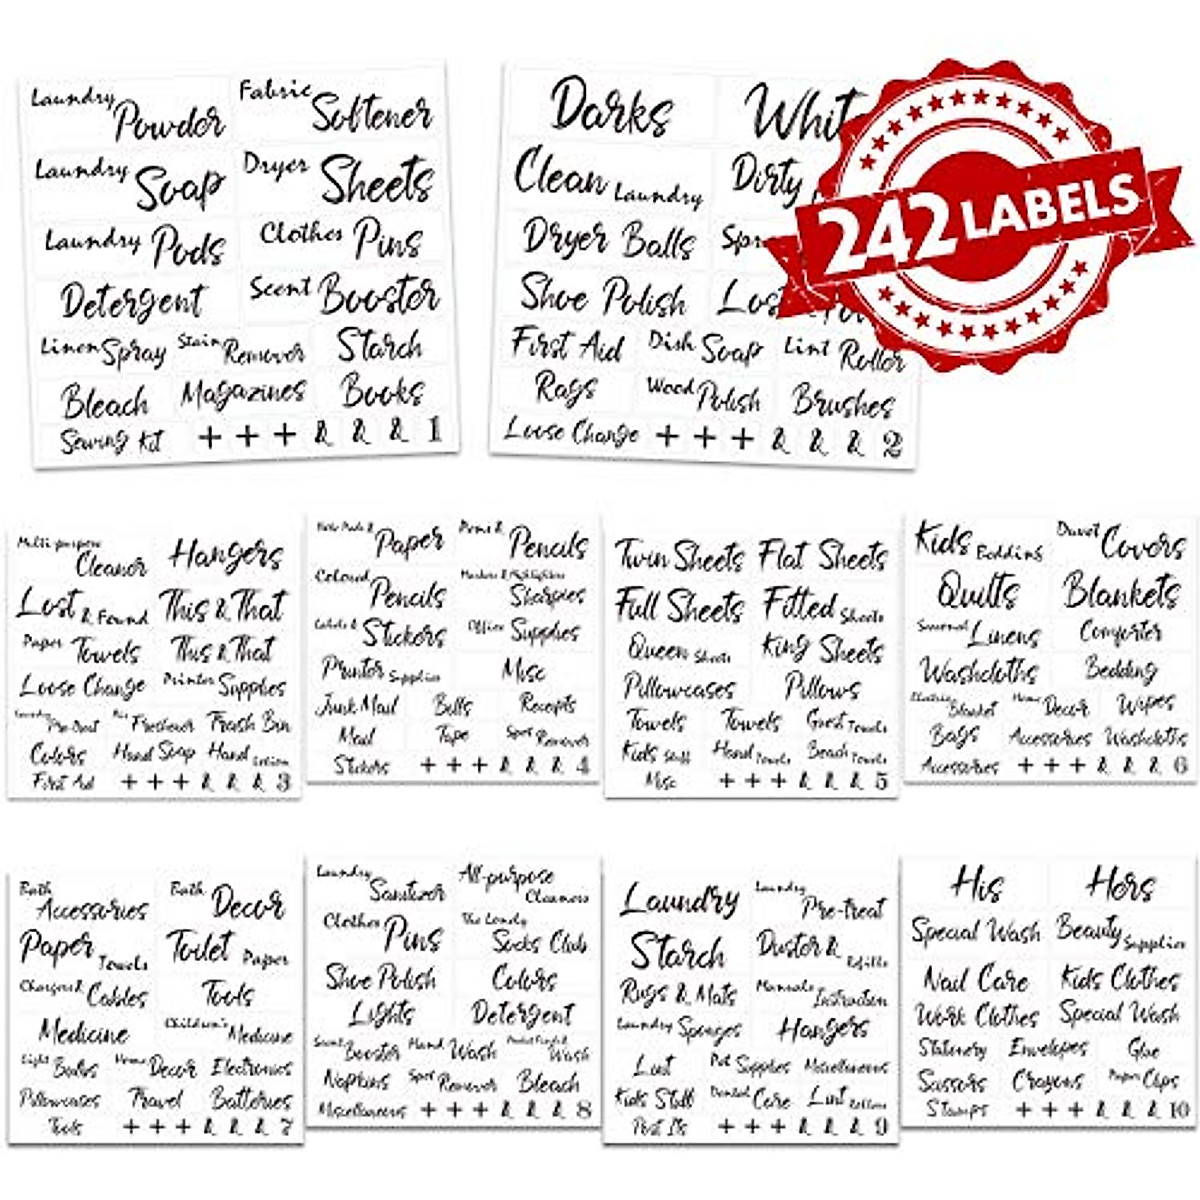 Laundry Powder Fabric Softener
Laundry Soap Dryer Sheets
Laundry Pods Clothes Pins
Detergent Scent Booster
Linen Spray Stain Remover Starch
Bleach Magazines Books
Sewing Kit + + + & & & 1
Darks
Clean Laundry Dirty
Dryer Balls
Shoe Polish Lost
First Aid Dish Soap Lint Roller
Rags Wood Polish Brushes
Loose Change + + + & & & 2
242 LABELS
Multi-purpose Cleaner Hangers
Lost & Found This & That
Paper Towels This & That
Loose Change Printer Supplies
Laundry Pre-Treat Air Freshener Trash Bin
Colors Hand Soap Hand Lotion
First Aid + + + & & & 3
Note Pads & Paper Pens & Pencils
Colored Pencils Markers & Highlighters Sharpies
Labels & Stickers Office Supplies
Printer Supplies Misc
Junk Mail Bills Receipts
Mail Tape Spot Remover
Stickers + + + & & & 4
Twin Sheets Flat Sheets
Full Sheets Fitted Sheets
Queen Sheets King Sheets
Pillowcases Pillows
Towels Towels Guest Towels
Kids Stuff Hand Towels Beach Towels
Misc + + + & & & 5
Kids Bedding Duvet Covers
Quilts Blankets
Seasonal Linens Comforter
Washcloths Bedding
Electric Blanket Home Decor Wipes
Bags Accessories Washcloths
Accessories + + + & & & 6
Bath Accessories Bath Decor
Paper Towels Toilet Paper
Chargers & Cables Tools
Medicine Children's Medicine
Light Bulbs Home Decor Electronics
Pillowcases Travel Batteries
Tools + + + & & & 7
Laundry Sanitizer All-purpose Cleaners
Clothes Pins The Lonely Socks Club
Shoe Polish Colors
Lights Detergent
Scent Booster Hand Wash Wash
Napkins Spot Remover Bleach
Miscellaneous + + + & & & 8
Laundry Laundry Pre-treat
Starch Duster & Refills
Rugs & Mats Manuals Instruction
Laundry Sponges Hangers
Lint Pet Supplies Miscellaneous
Kids Stuff Dental Care Lint Rollers
Post Its + + + & & & 9
His Hers
Special Wash Beauty Supplies
Nail Care Kids Clothes
Work Clothes Special Wash
Stationery Envelopes Glue
Scissors Crayons Paper Clips
Stamps + + + & & & 10